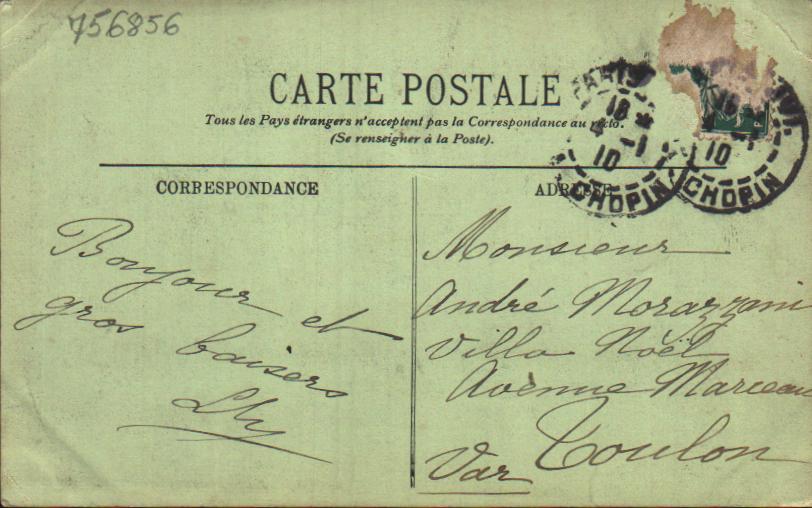 756856
CARTE POSTALE
Tous les Pays étrangers n'acceptent pas la Correspondance au recto.
(Se renseigner à la Poste).
PARIS
18
4 - 1
10
CHOPIN
10
CHOPIN
CORRESPONDANCE
ADRESSE
Bonjour et
gros baisers
Lly
Monsieur
André Morazzani
Villa Noël
Avenue Marceau
Toulon
Var